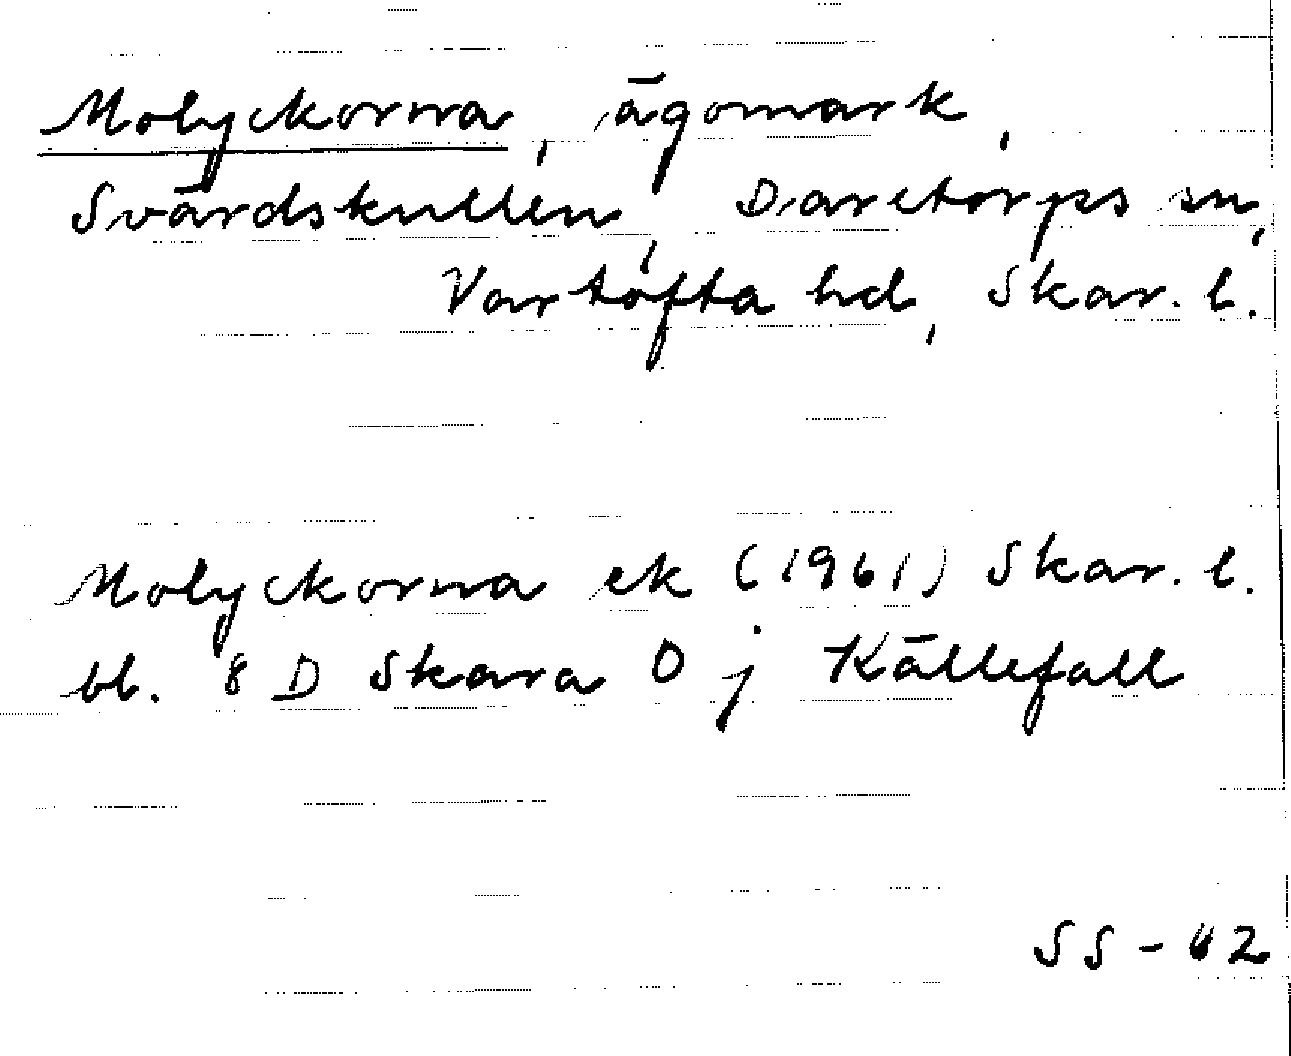 Molyckorna, ägomark,
Svärdskullen, Daretorps sn,
Vartofta hd, Skar. l.
Molyckorna ek (1961) Skar. l.
bl. 8 D Skara 0 j Källefall
SS-